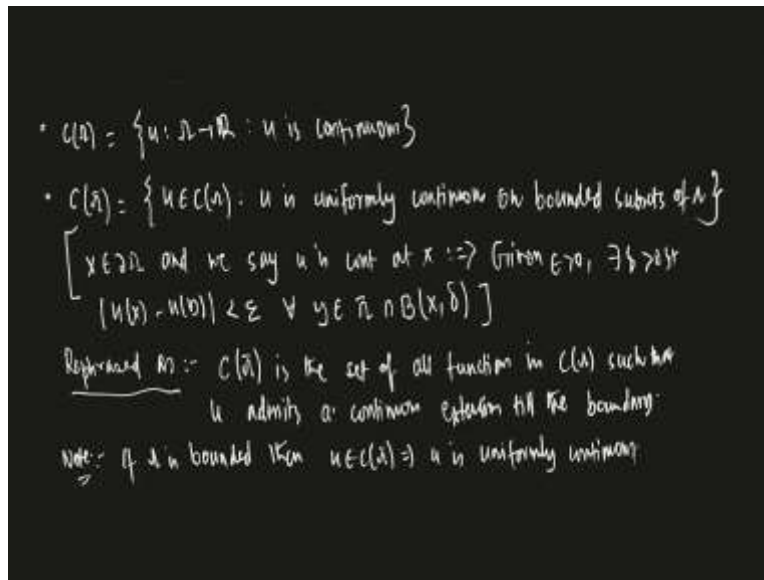 • C(Ω) = {u : Ω → ℝ : u is continuous}
• C(Ω̄) = {u ∈ C(Ω) : u is uniformly continuous on bounded subsets of Ω}
[x ∈ ∂Ω and we say u is cont at x :=> Given ε>0, ∃ δ>0 st
|u(x) - u(y)| < ε ∀ y ∈ Ω̄ ∩ B(x, δ)]
Rephrased as :- C(Ω̄) is the set of all function in C(Ω) such that
u admits a continuous extension till the boundary.
Note :- If Ω is bounded then u ∈ C(Ω̄) => u is uniformly continuous